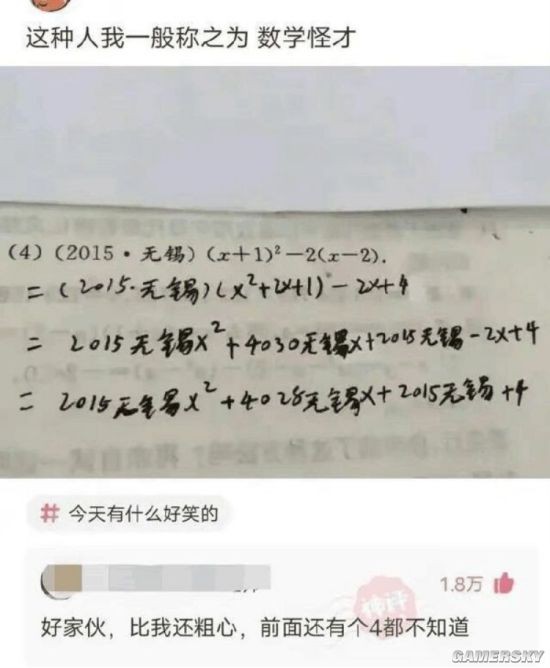 这种人我一般称之为 数学怪才
(4)(2015·无锡)(x+1)²-2(x-2).
=(2015·无锡)(x²+2x+1)-2x+4
= 2015无锡x²+4030无锡x+2015无锡-2x+4
= 2015无锡x²+4028无锡x+2015无锡+4
# 今天有什么好笑的
1.8万
神评
好家伙，比我还粗心，前面还有个4都不知道
GAMERSKY